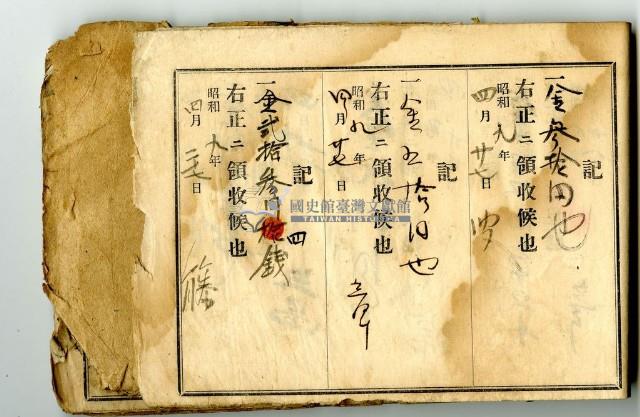 記
一金参拾円也
右正ニ領收候也
昭和九年
四月廿七日
記
一金五拾円也
右正ニ領收候也
昭和九年
四月廿七日
記
一金弐拾参円
四
銭
右正ニ領收候也
昭和九年
四月二七日
藤
國史館臺灣文獻館
TAIWAN HISTORICA